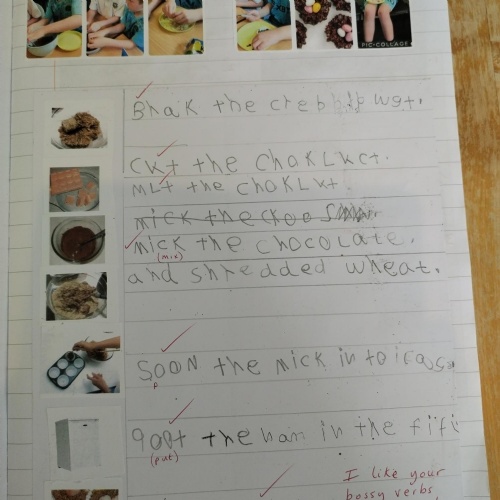 PIC·COLLAGE
Brak the creb wet.
cut the chakLkct.
mLt the choKLkt.
mick the choo
mick the chocolate.
(mix)
and shredded wheat.
SOON the mick in to
P
the ham in the
(put)
I like your
bossy verbs